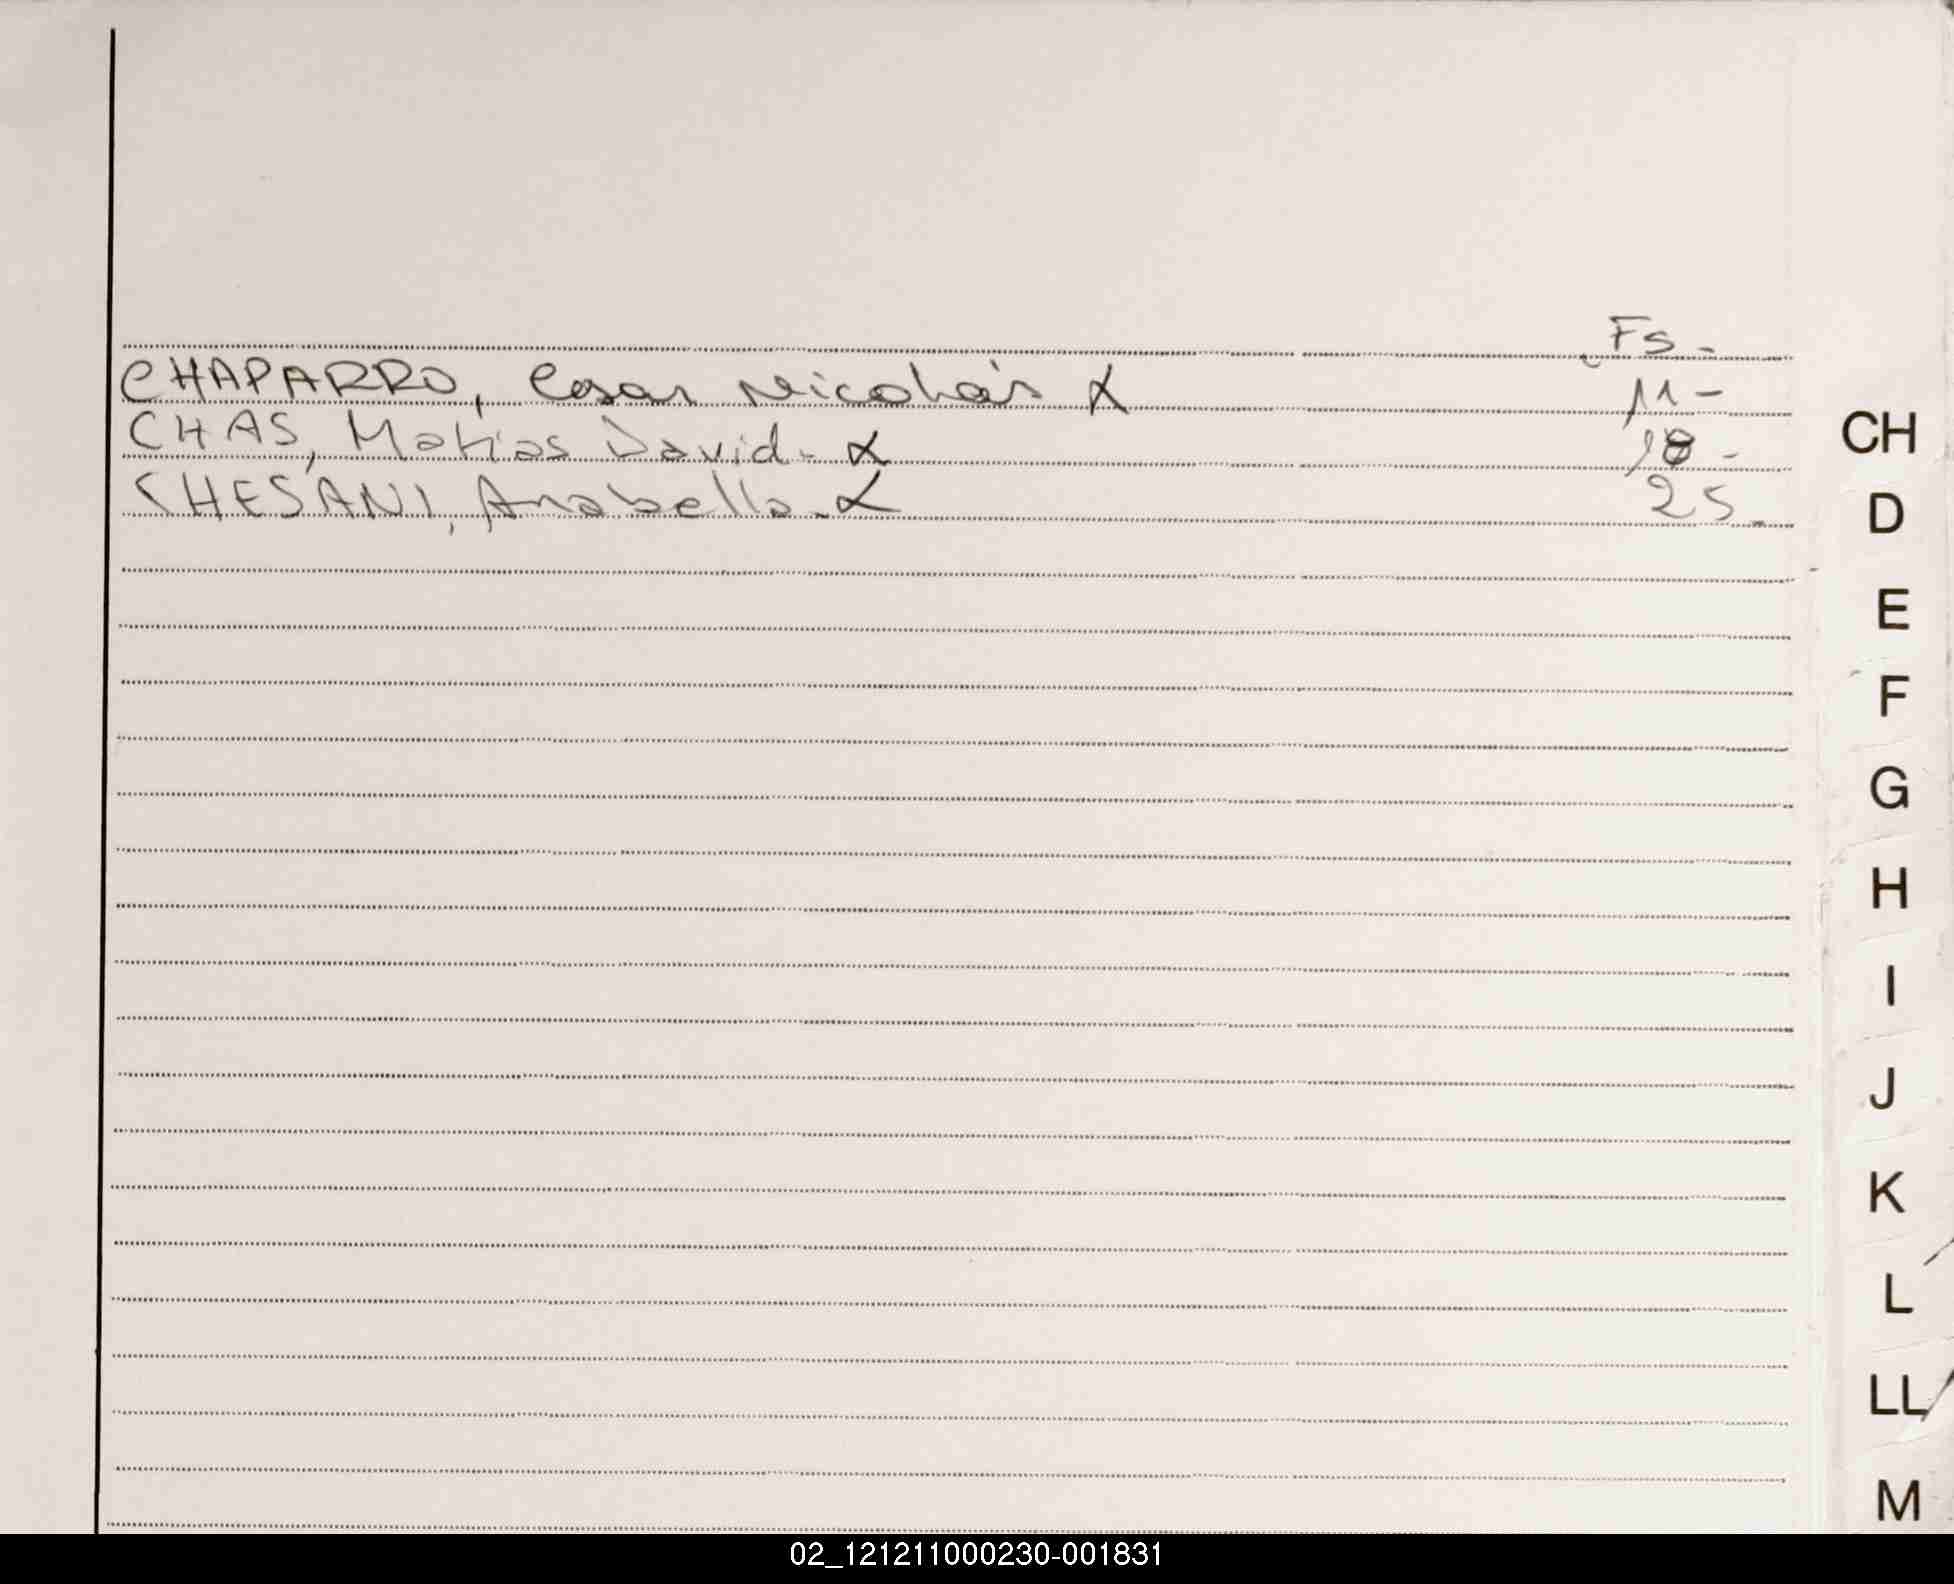 Fs.
CHAPARRO, Cesar Nicolás X 11-
CHAS, Matias David- X 18-
CHESANI, Anabella- X 25-
CH
D
E
F
G
H
I
J
K
L
LL
M
02_121211000230-001831